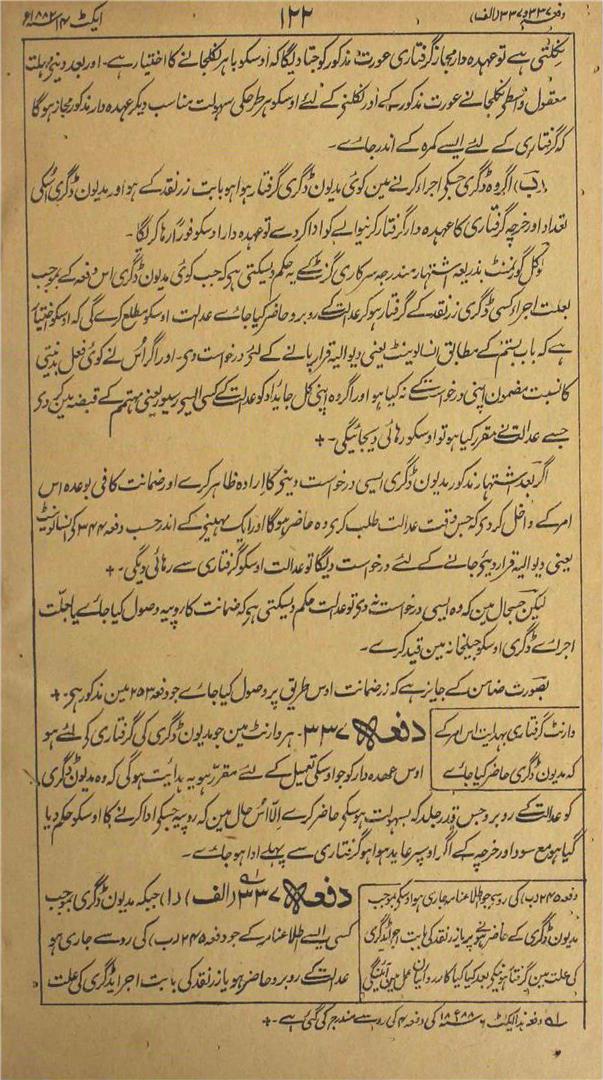 دفعہ ۳۳۷ و ۳۳۷ (الف)
۱۲۲
ایکٹ ۱۴ ۱۸۸۲ء
نکلتی ہے تو عہدہ دار مجاز گرفتاری عورت مذکور کو جتا دیگا کہ اوسکو باہر نکلجانے کا اختیار ہے۔ اور بعد دینے مہلت
معقول واسطے نکلجانے عورت مذکور کے اور نکلنے کے لئے اوسکو ہر طرحکی سہولت مناسب دیکر عہدہ دار مذکور مجاز ہوگا
کہ گرفتاری کے لئے ایسے کمرہ کے اندر جاے۔
(ب) اگر وہ ڈگری جسکے اجرا کرنے مین کوئی مدیون ڈگری گرفتار ہوا ہو بابت زر نقد کے ہو اور مدیون ڈگری اسکی
تعداد اور خرچہ گرفتاری کا عہدہ دار گرفتار کرنیوالے کو ادا کر دے تو عہدہ دار اوسکو فوراً رہا کریگا۔
لوکل گورنمنٹ بذریعہ اشتہار مندرجہ سرکاری گزٹ کے یہ حکم دیسکتی ہے کہ جب کوئی مدیون ڈگری اس دفعہ کے بموجب
بعلت اجراے کسی ڈگری زر نقد کے گرفتار ہوکر عدالت کے روبرو حاضر کیا جاے عدالت اوسکو مطلع کرے گی کہ اوسکو اختیار
ہے کہ باب بستم کے مطابق انسالونٹ یعنی دیوالیہ قرار پانے کے لئے درخواست دے۔ اور اگر اُس نے کوئی فعل بدنیتی
کا نسبت مضمون اپنی درخواست کے نہ کیا ہو اور اگر وہ اپنی کل جایداد کو عدالت کے کسی ایسے رسیور یعنی مہتمم کے قبضہ مین کر دے
جسے عدالت نے مقرر کیا ہو تو اوسکو رہائی دیجائیگی۔+
اگر بعد اشتہار مذکور مدیون ڈگری ایسی درخواست دینے کا ارادہ ظاہر کرے اور ضمانت کافی بوعدہ اس
امر کے داخل کر دے کہ جس وقت عدالت طلب کرے وہ حاضر ہوگا اور ایک مہینے کے اندر حسب دفعہ ۳۴۴ کے انسالونٹ
یعنی دیوالیہ قرار دیئے جانے کے لئے درخواست دیگا تو عدالت اوسکو گرفتاری سے رہائی دیگی۔+
لیکن جس حال مین کہ وہ ایسی درخواست نہ دے تو عدالت حکم دیسکتی ہے کہ ضمانت کا روپیہ وصول کیا جاے یا بعلت
اجراے ڈگری اوسکو جیلخانہ مین قید کرے۔
بصورت ضامن کے جایز ہے کہ زر ضمانت اوس طریق پر وصول کیا جاے جو دفعہ ۲۵۳ مین مذکور ہے۔+
وارنٹ گرفتاری بہدایت اس امر کے
کہ مدیون ڈگری حاضر کیا جاے
دفعہ ۳۳۷۔ ہر وارنٹ مین جو مدیون ڈگری کی گرفتاری کے لئے ہو
اوس عہدہ دار کو جو اوسکی تعمیل کے لئے مقرر ہو یہ ہدایت ہوگی کہ وہ مدیون ڈگری
کو عدالت کے روبرو جس قدر جلد کہ بسہولت ہوسکے حاضر کرے اِلّا اُس حال مین کہ روپیہ جسکے ادا کرنے کا اوسکو حکم دیا
گیا ہو مع سود اور خرچہ کے اگر اوسپر عاید ہوا ہو گرفتاری سے پہلے ادا ہو جاے۔
دفعہ ۲۴۵ (ب) کی رو سے جو اطلاعنامہ جاری ہو اوسکے بموجب
مدیون ڈگری کے حاضر ہونے پر یا زر نقد کی بابت اجراے ڈگری
کی علت مین گرفتار ہونیکے بعد کیا کیا کارروائیان عمل مین آئینگی
دفعہ ۳۳۷ (الف) (۱) جبکہ مدیون ڈگری بموجب
کسی ایسے اطلاعنامہ کے جو دفعہ ۲۴۵ (ب) کی رو سے جاری ہو
عدالت کے روبرو حاضر ہو یا زر نقد کی بابت اجراے ڈگری کی علت
۵۱ دفعہ ہذا ایکٹ ۶ ۱۸۸۸ء کی دفعہ ۴ کی رو سے مندرج کی گئی ہے۔+